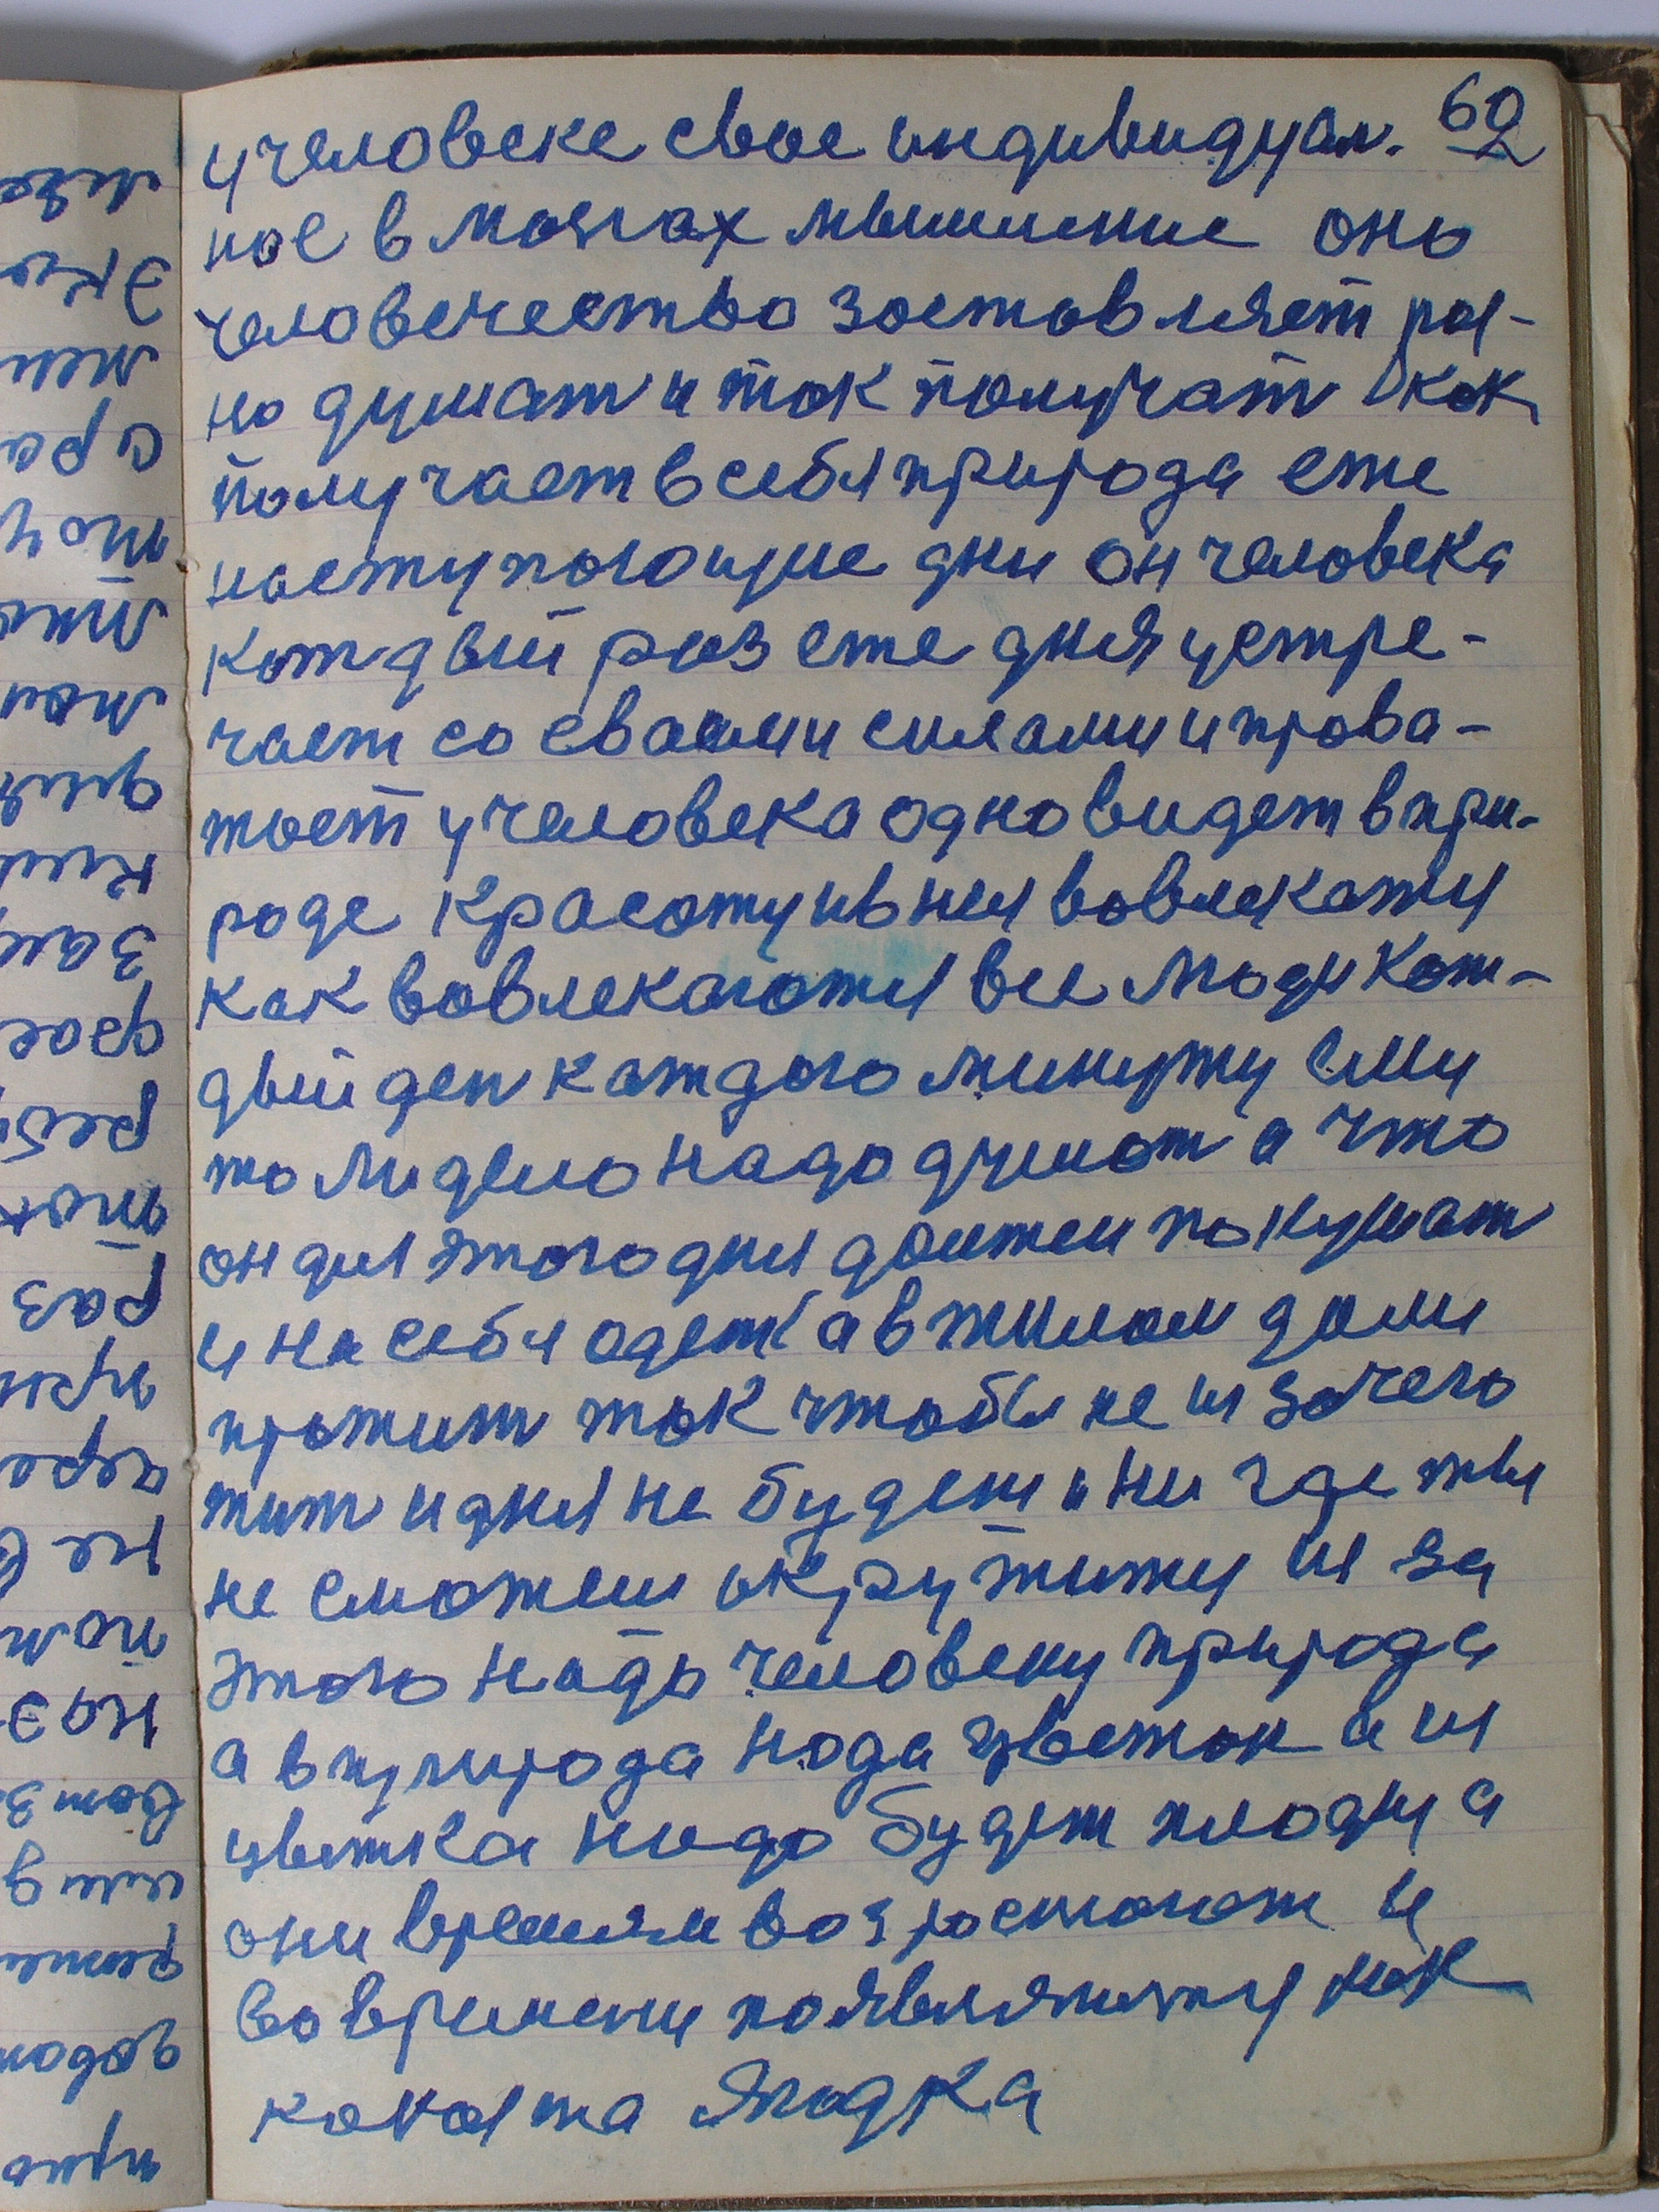 60
у человеке свое индивидуал.
ное в мозгах мышление оно
человечество зоставляет рая-
но думат и ток получат как
получает в себя природа еже
наступающие дни он человека
котдвый раз еже дня устре-
чает со своими силами и прова-
жает у человека одно видет в при-
роде красоту и в нея вовлекатя
как вовлекаютя все люди кат-
двый ден каждого минуту ему
то ли дело надо думат а что
он для этого дня должен покушат
и на себя одет а в жилом доми
прожит ток чтобы не из зачего
жит и дня не будет и ни где ты
не сможеш окружитя из за
этого надо человеку природа
а в природа нода цветок а из
цветка надо будет плоду а
они времям возростают и
во времени появляютя как
кокоя та ягадка